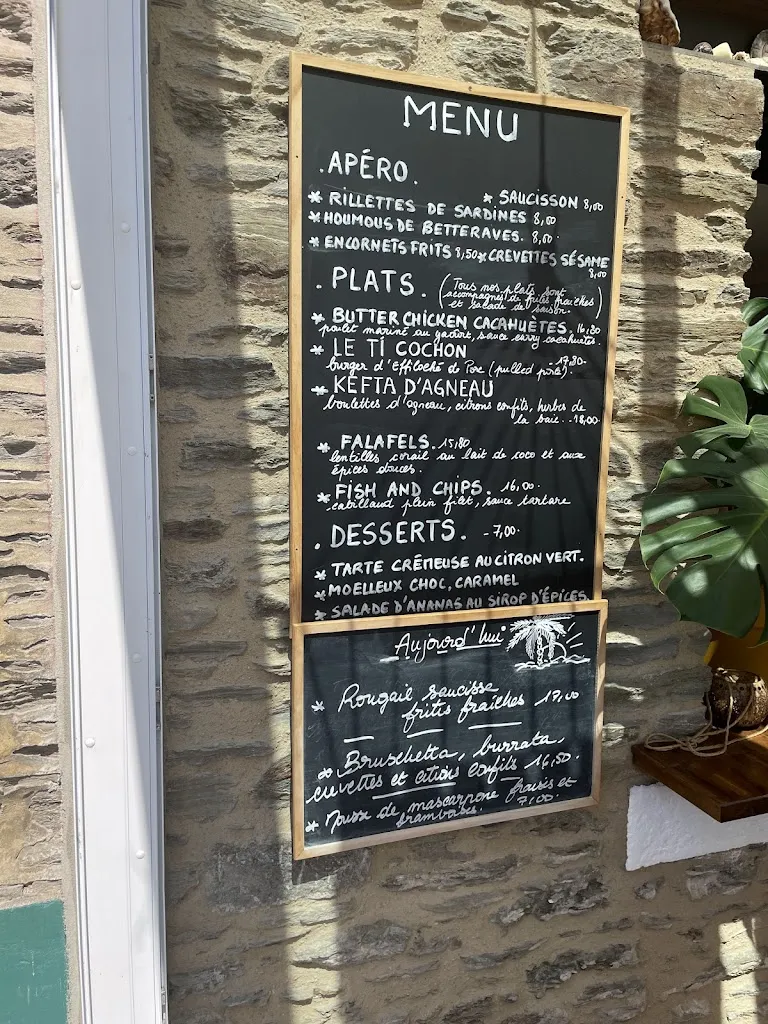 MENU
.APÉRO.
* SAUCISSON 8,00
* RILLETTES DE SARDINES 8,00
* HOUMOUS DE BETTERAVES. 8,00.
* ENCORNETS FRITS 8,50 * CREVETTES SÉSAME
8,00
. PLATS. (Tous nos plats sont
accompagnés de frites fraîches
et salade de saison.)
* BUTTER CHICKEN CACAHUÈTES. 16,80
poulet mariné au yaourt, sauce curry cacahuètes.
* LE TI COCHON -17,80-
burger d'Effiloché de Porc (pulled pork).
* KEFTA D'AGNEAU
boulettes d'agneau, citrons confits, herbes de
la baie. -18,00-
* FALAFELS. 15,80
lentilles corail au lait de coco et aux
épices douces.
* FISH AND CHIPS. 16,00.
cabillaud plein filet, sauce tartare
. DESSERTS. -7,00-
* TARTE CRÉMEUSE AU CITRON VERT.
* MOELLEUX CHOC, CARAMEL
* SALADE D'ANANAS AU SIROP D'ÉPICES
Aujourd'hui
* Rougail saucisse
frites fraîches 17,00
* Bruschetta, burrata,
crevettes et citrons confits 16,50.
* Mousse de mascarpone fraises et
framboises. 7,00.